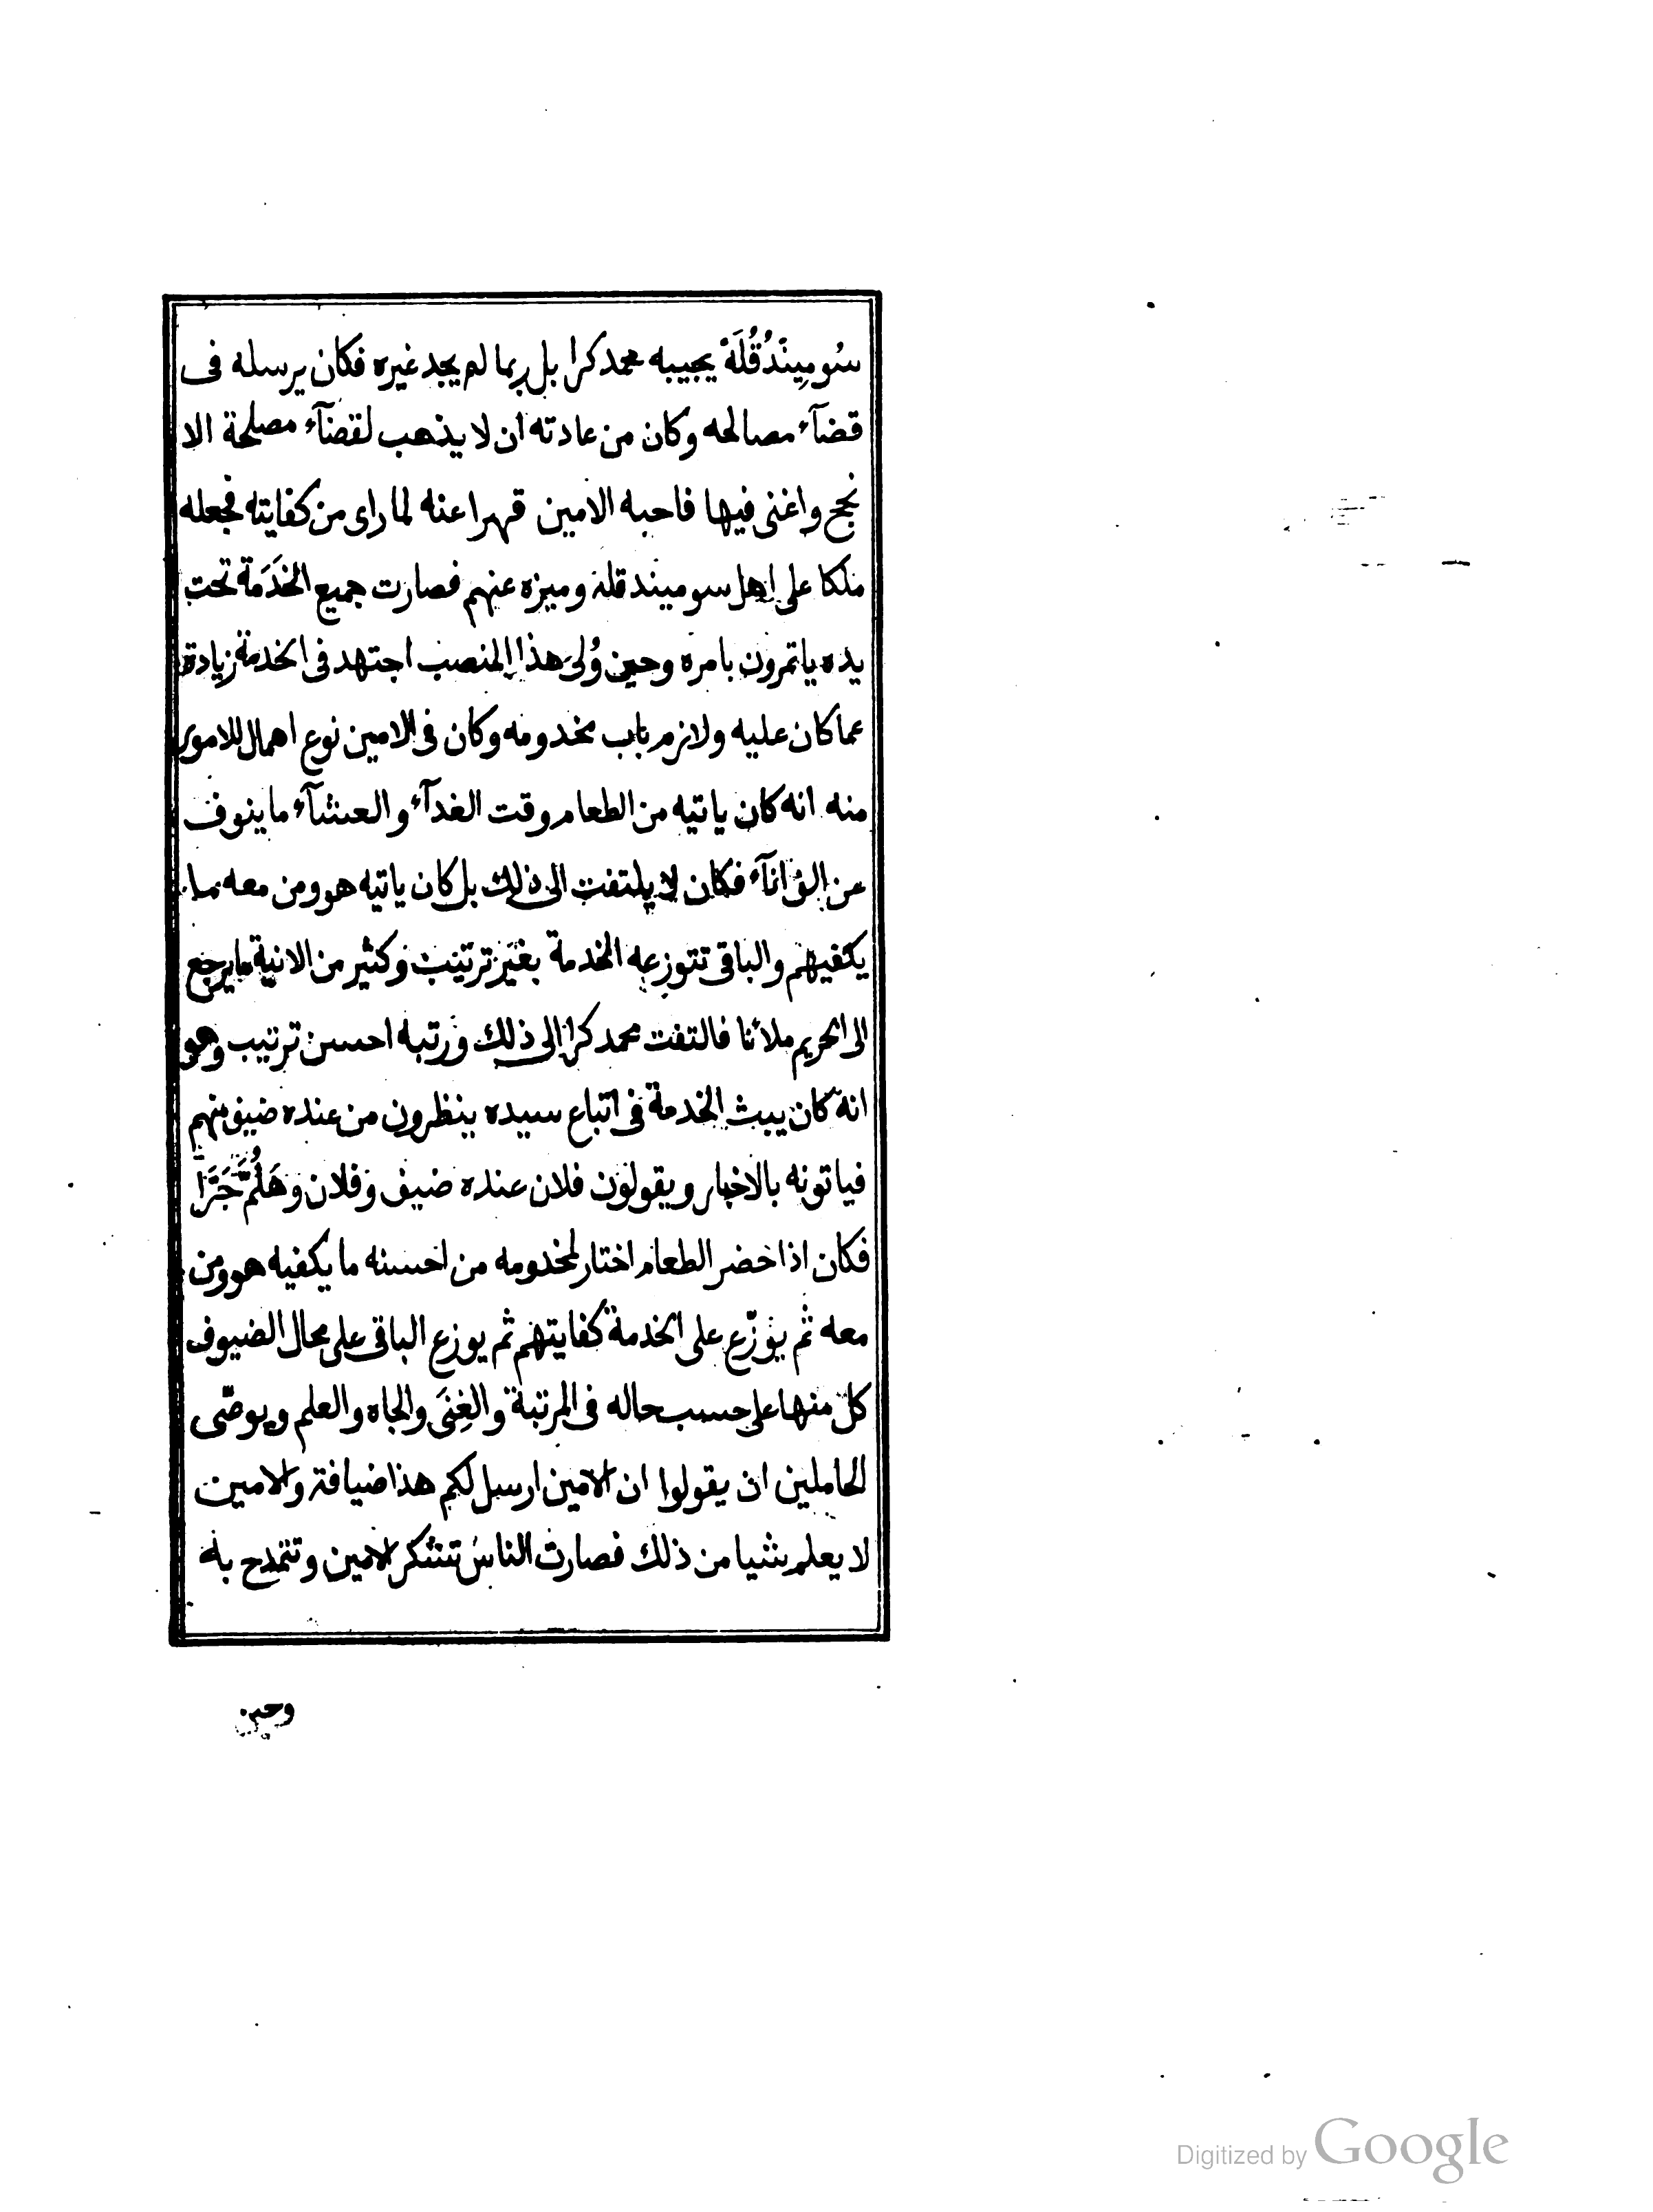 سُومِينْدُقُلَهْ يجيبه محمد كرا بل ربما لم يجد غيره فكان يرسله فى
قضآء مصالحه وكان من عادته ان لا يذهب لقضآء مصلحة الا
نجح واغنى فيها فاحبه الامين قهرا عنه لما راى من كفايته فجعله
ملكا على اهل سوميندقله وميزه عنهم فصارت جميع الخَدَمة تحت
يده ياتمرون بامره وحين وُلىَ هذا المنصب اجتهد فى الخدمة زيادة
عما كان عليه ولازم باب مخدومه وكان فى الامين نوع اهمال للامور
منه انه كان ياتيه من الطعام وقت الغدآء والعشآء ما ينوف
عن اناآء فكان لا يلتفت الى ذلك بل كان ياتيه هو ومن معه ما
يكفيهم والباقى تتوزعه الخدمة بغير ترتيب وكثير من الانية ما يرجع
الى الحريم ملأنا فالتفت محمد كرا الى ذلك ورتبه احسن ترتيب وهو
انه كان يبث الخدمة فى اتباع سيده ينظرون من عنده ضيف منهم
فياتونه بالاخبار ويقولون فلان عنده ضيف وفلان وهَلُمَّ جَرَّا
فكان اذا حضر الطعام اختار لمخدومه من احسنه ما يكفيه هو ومن
معه ثم يوزّع على الخدمة كفايتهم ثم يوزع الباقى على محال الضيوف
كل منها على حسب حاله فى المرتبة والغِنَى والجاه والعلم ويوصّى
الحاملين ان يقولوا ان الامين ارسل لكم هذا ضيافة والامين
لا يعلم شيا من ذلك فصارت الناس تتشكر الامين وتتمدح به
وحين
Digitized by Google